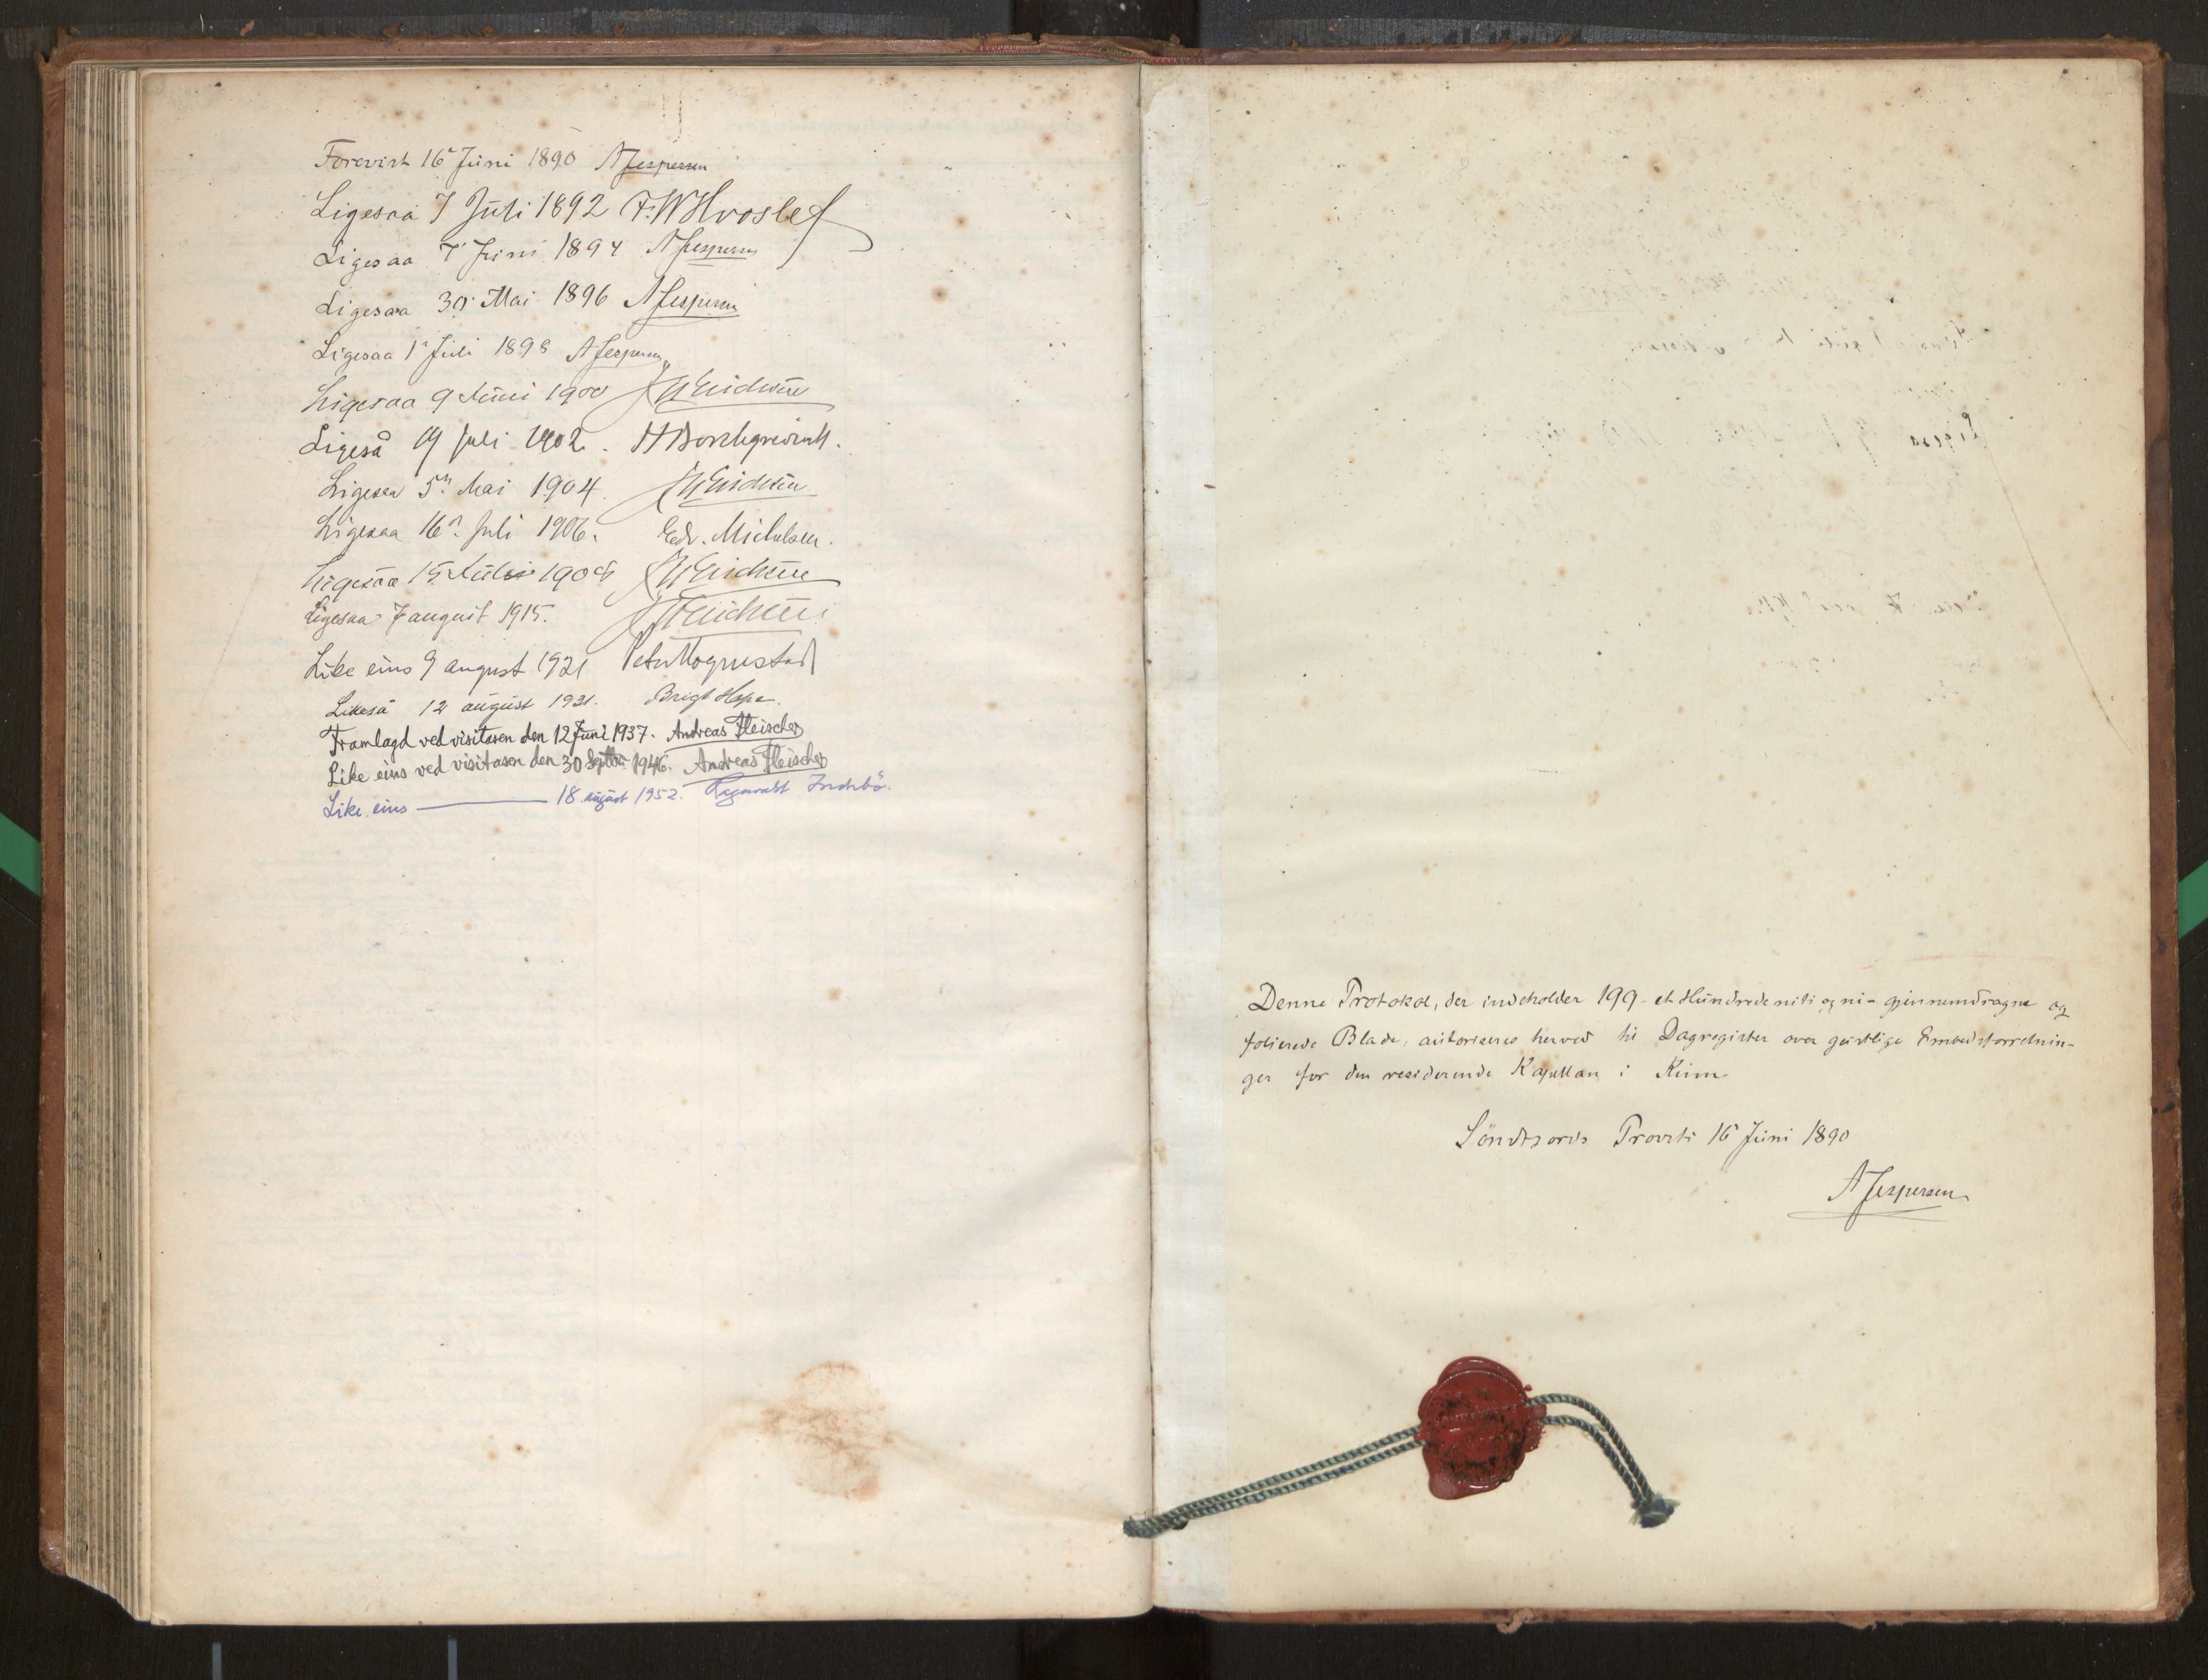 Forevist 16' Juni 1890 A Jespersen
Ligesaa 7 Juli 1892 F.W Hvoslef
Ligesaa 7' Juni 1894 A Jespersen
Ligesaa 30' Mai 1896 A Jespersen
Ligesaa 1' Juli 1898 A Jespersen
Ligesaa 9 Juni 1900
Ligeså 19 Juli 1902. H Borchgrevink.
Ligesaa 5n. Mai 1904.
Ligesaa 16n. Juli 1906. Edv. Michelsen.
Ligesaa 15. Juli 1908
Ligesaa 7 august 1915.
Like eins 9 august 1921 Peter Hognestad
Likeså 12 august 1931.
Framlagd ved visitasen den 12 Juni 1937. Andreas Fleischer
Like eins ved visitasen den 30 Septbr 1946. Andreas Fleischer
Like eins ——— 18. august 1952. Ragnvald Indrebö.
Denne Protokol, der indeholder 199 - et Hundrede niti og ni - gjennemdragne og
folierede Blade, autoriseres herved til Dagregister over geistlige Embedsforretnin-
ger for den residerende Kapellan i Kinn
Söndfjords Provsti 16' Juni 1890
A Jespersen